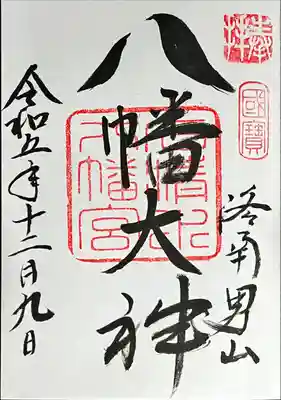 奉拝
國寶
洛南男山
八幡大神
石清水八幡宮
令和五年十二月九日